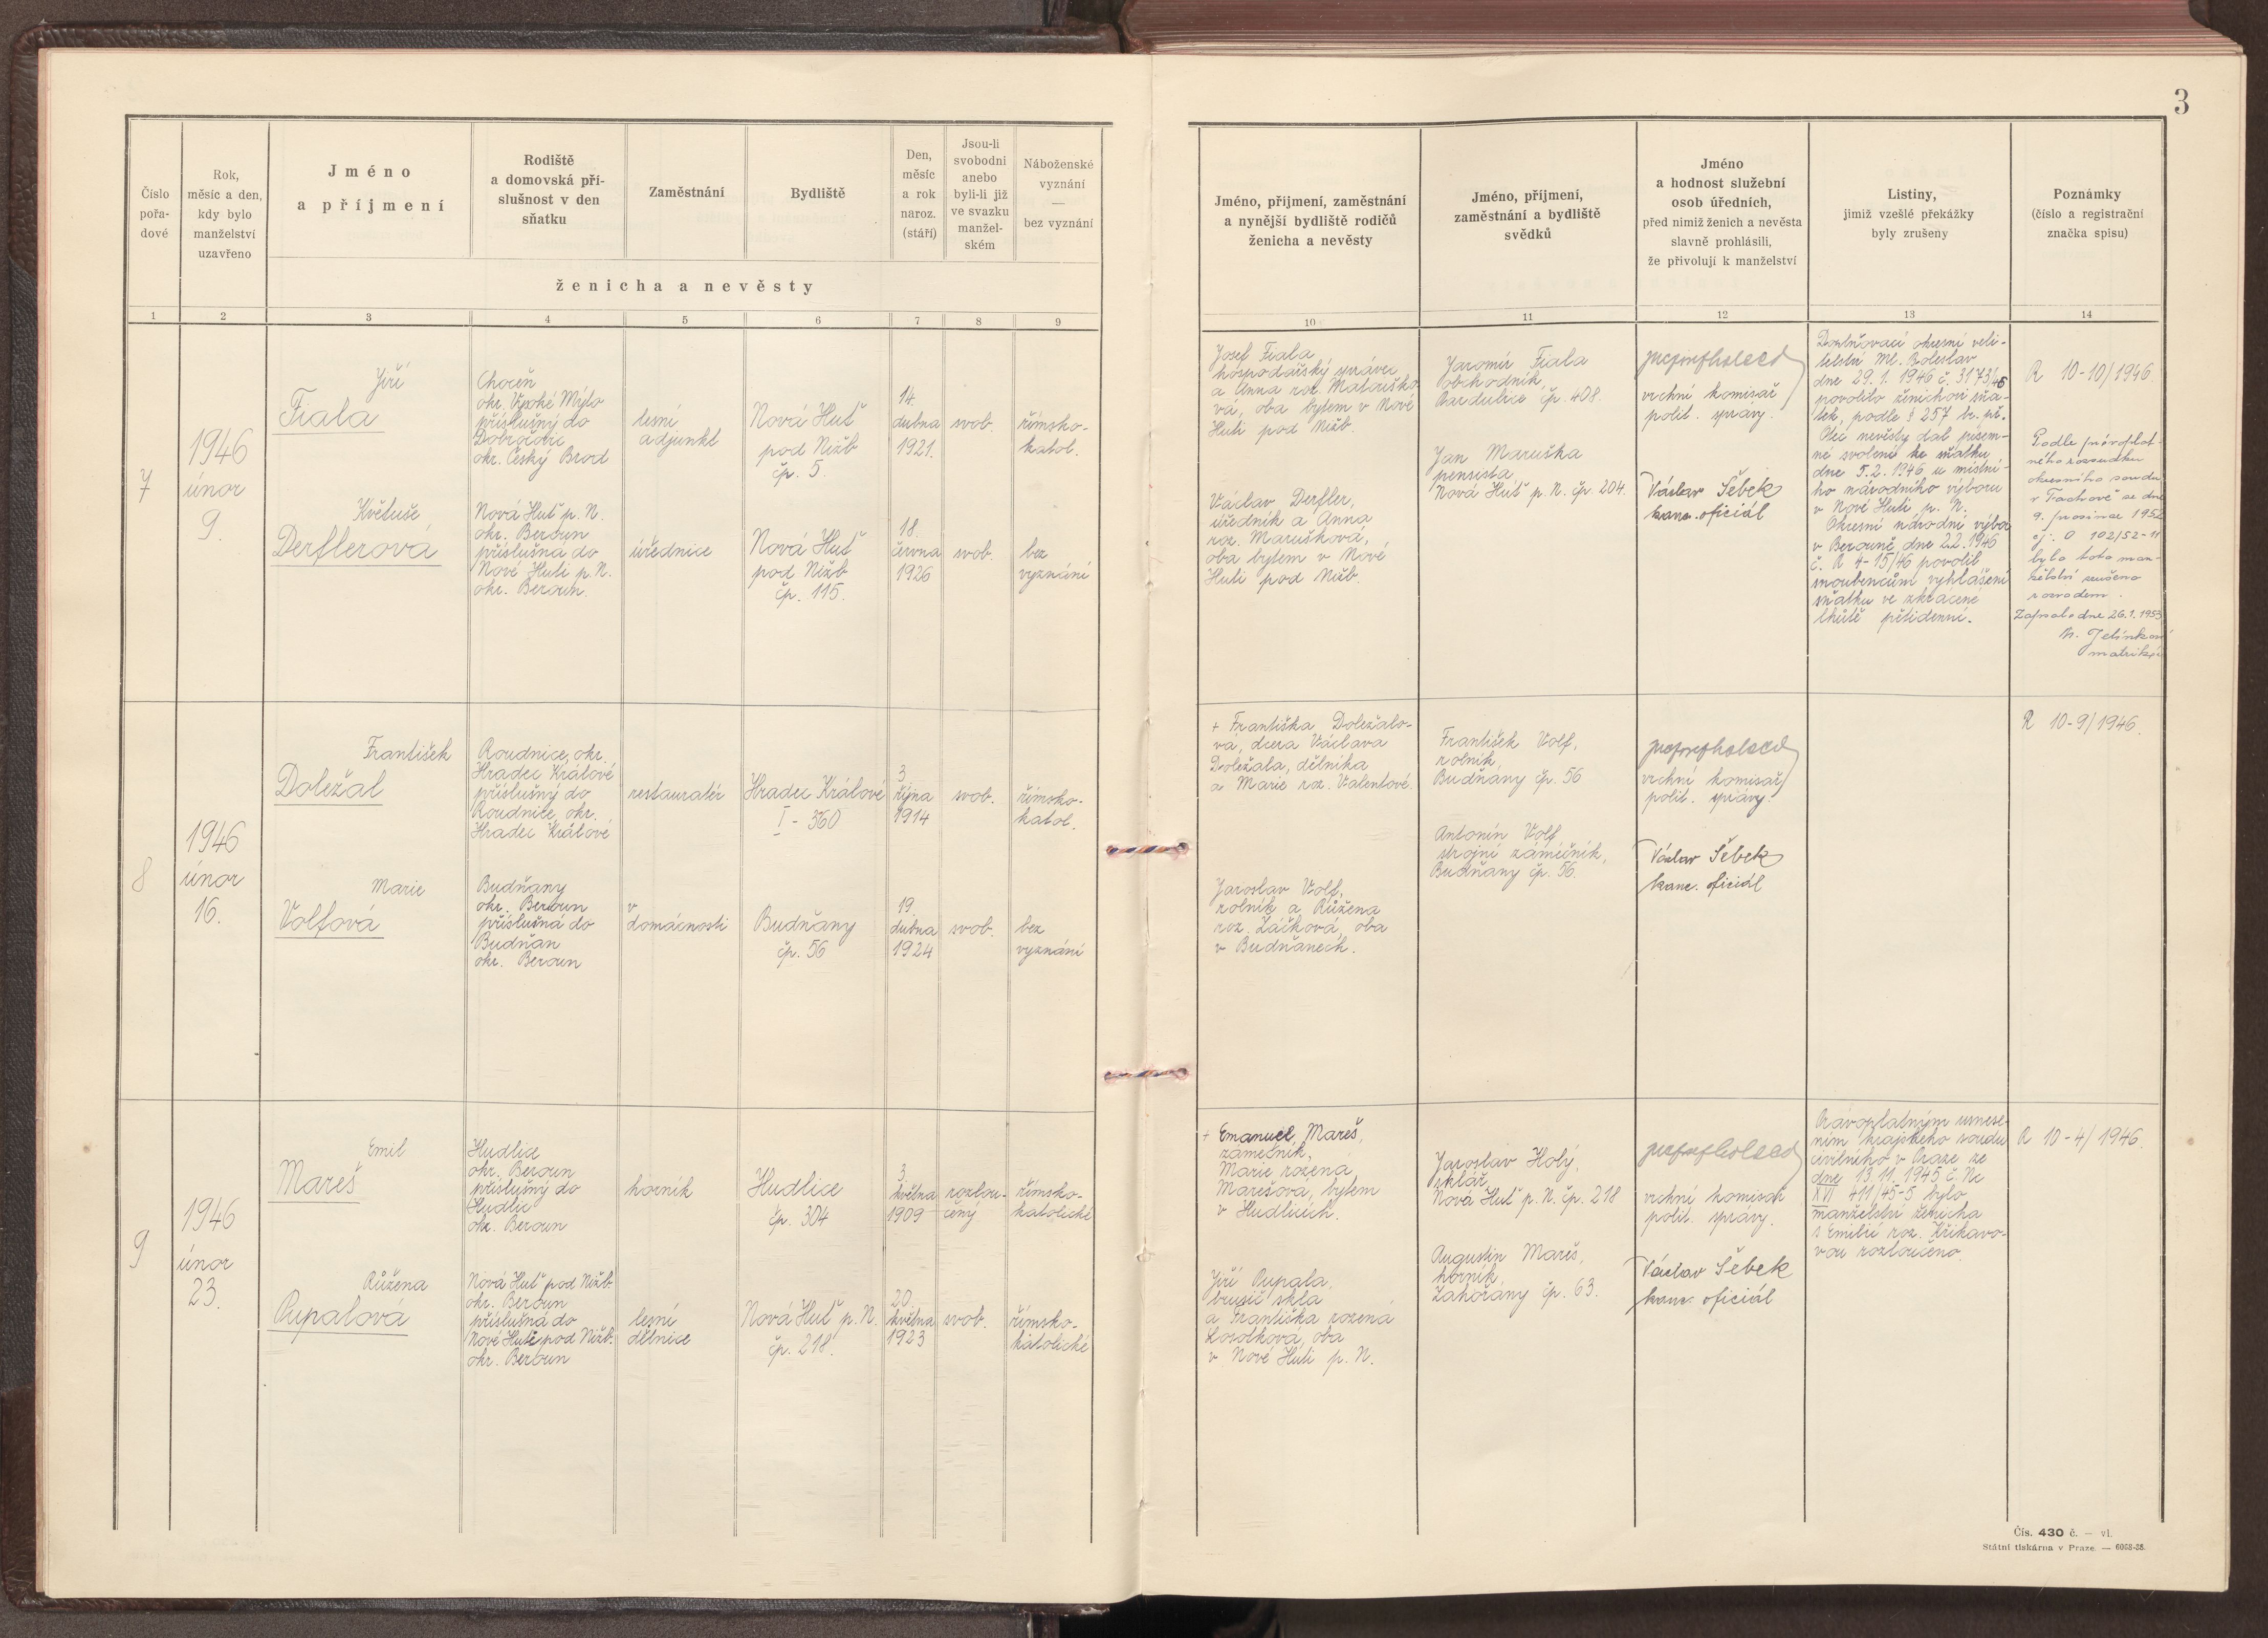 3
Číslo
pořa-
dové
Rok,
měsíc a den,
kdy bylo
manželství
uzavřeno
Jméno
a příjmení
Rodiště
a domovská pří-
slušnost v den
sňatku
Zaměstnání
Bydliště
Den,
měsíc
a rok
naroz.
(stáří)
Jsou-li
svobodni
anebo
byli-li již
ve svazku
manžel-
ském
Náboženské
vyznání
—
bez vyznání
ženicha a nevěsty
Jméno, příjmení, zaměstnání
a nynější bydliště rodičů
ženicha a nevěsty
Jméno, příjmení,
zaměstnání a bydliště
svědků
Jméno
a hodnost služební
osob úředních,
před nimiž ženich a nevěsta
slavně prohlásili,
že přivolují k manželství
Listiny,
jimiž vzešlé překážky
byly zrušeny
Poznámky
(číslo a registrační
značka spisu)
1 2 3 4 5 6 7 8 9 10 11 12 13 14
7
1946
únor
9.
Jiří
Fiala
Choceň
okr. Vysoké Mýto
příslušný do
okr. Český Brod
lesní
adjunkt
Nová Huť
pod Nižb.
čp. 5.
14.
dubna
1921.
svob.
římsko-
katol.
Květuše
Derflerová
Nová Huť p. N.
okr. Beroun
příslušná do
Nové Huti p. N.
okr. Beroun.
úřednice
Nová Huť
pod Nižb.
čp. 115.
18.
června
1926
svob.
bez
vyznání
Josef Fiala
hospodářský správce
a Anna roz. Matouško-
vá, oba bytem v Nové
Huti pod Nižb.
Václav Derfler,
úředník a Anna
roz. Marušková,
oba bytem v Nové
Huti pod Nižb.
Jaromír Fiala
obchodník,
Pardubice čp. 408.
Jan Maruška
pensista
Nová Huť p. N. čp. 204.
vrchní komisař
polit. správy.
Václav Šebek
kanc. oficiál
Doplňovací okresní veli-
telství Ml. Boleslav
dne 29.1.1946 č. 3173/46
povolilo ženichovi sňa-
tek, podle § 257 br. př.
Otec nevěsty dal písem-
né svolení ke sňatku
dne 5.2.1946 u místní-
ho národního výboru
v Nové Huti p. N.
Okresní národní výbor
v Berouně dne 2.2.1946
č. R 4-15/46 povolil
snoubencům vyhlášení
sňatku ve zkrácené
lhůtě pětidenní.
R 10-10/1946
Podle pravoplat-
ného rozsudku
okresního soudu
v Tachově ze dne
9. prosince 1952
čj. C 102/52-11
bylo toto man-
želství zrušeno
rozvodem.
Zapsáno dne 26.1.1953
M. Jelínková
matrikář
8
1946
únor
16.
František
Doležal
Roudnice, okr.
Hradec Králové
příslušný do
Roudnice, okr.
Hradec Králové
restauratér
Hradec Králové
I - 360
3.
října
1914
svob.
římsko-
katol.
Marie
Volfová
Budňany
okr. Beroun
příslušná do
Budňan
okr. Beroun
v
domácnosti
Budňany
čp. 56
19.
dubna
1924
svob.
bez
vyznání
+ Františka Doležalo-
va, dcera Václava
Doležala, dělníka
a Marie roz. Valentové.
Jaroslav Volf,
rolník a Růžena
roz. Žáčková, oba
v Budňanech.
František Volf,
rolník,
Budňany čp. 56
Antonín Volf
strojní zámečník,
Budňany čp. 56.
vrchní komisař
polit. správy.
Václav Šebek
kanc. oficiál
R 10-9/1946.
9
1946
únor
23.
Emil
Mareš
Hudlice
okr. Beroun
příslušný do
Hudlic
okr. Beroun
horník
Hudlice
čp. 304
3.
května
1909
rozlou-
čený
římsko-
katolické
Růžena
Pupalová
Nová Huť pod Nižb.
okr. Beroun
příslušná do
Nové Huti pod Nižb.
okr. Beroun
lesní
dělnice
Nová Huť p. N.
čp. 218.
20.
května
1923
svob.
římsko-
katolické
+ Emanuel Mareš,
zámečník,
Marie rozená
Marešová, bytem
v Hudlicích.
Jiří Pupala,
brusič skla
a Františka rozená
oba
v Nové Huti p. N.
Jaroslav Holý,
sklář,
Nová Huť p. N. čp. 218
Augustin Mareš,
horník,
Zahořany čp. 63.
vrchní komisař
polit. správy.
Václav Šebek
kanc. oficiál
Právoplatným usnese-
ním krajského soudu
civilního v Praze ze
dne 13.11.1945 č. Nc
XVI 411/45-5 bylo
manželství ženicha
s Emilií roz. Křikavo-
vou rozloučeno
R 10-4/1946.
Čís. 430 č. — vl.
Státní tiskárna v Praze. — 6068-38.